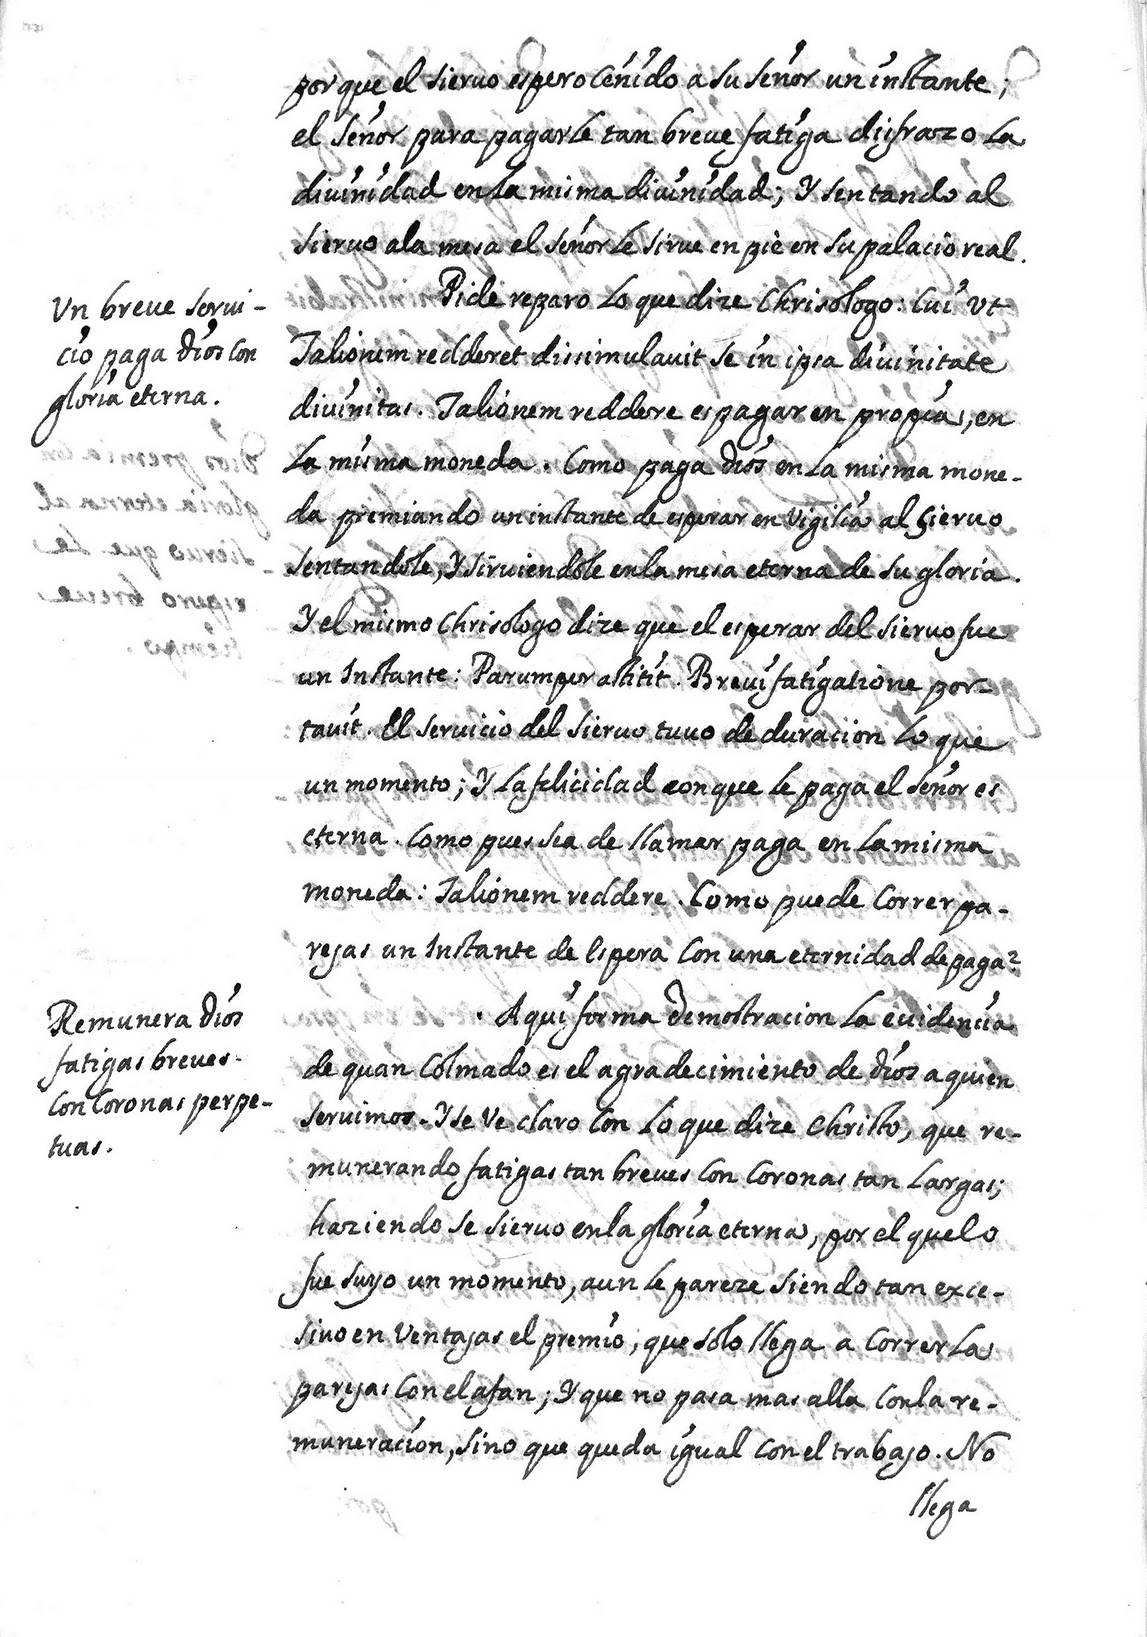 porque el siervo espero ceñido a su señor un instante;
el señor para pagarle tan breve fatiga disfrazo la
divinidad en la misma divinidad; Y sentando al
siervo ala mesa el señor le sirve en piè en su palacio real.
Un breve servi-
cio paga Dios con
gloria eterna.
Pide reparo lo que dize Chrisologo: Cui Vt
Talionem redderet dissimulavit se in ipsa divinitate
divinitas. Talionem reddere es pagar en propia, en
la misma moneda. Como paga Dios en la misma mone-
da premiando un instante de esperar en Vigilia al siervo
sentandole, Y sirviendole en la mesa eterna de su gloria.
Y el mismo Chrisologo dize que el esperar del siervo fue
un Instante: Parumper astitit. Brevi fatigatione por-
tavit. El servicio del siervo tuvo de duracion lo que
un momento; Y la felicidad con que le paga el señor es
eterna. Como pues sea de llamar paga en la misma
moneda: Talionem reddere. Como puede correr pa-
rejas un Instante de Espera con una eternidad de paga?
Remunera Dios
fatigas breves
con Coronas perpe-
tuas.
Aqui forma demostracion la evidencia
de quan colmado es el agradecimiento de Dios a quien
servimos. Y se ve claro con lo que dize Christo, que re-
munerando fatigas tan breves con Coronas tan largas;
haziendo se siervo en la gloria eterna, por el que lo
fue suyo un momento, aun le pareze siendo tan exce-
sivo en Ventajas el premio, que solo llega a correr la
parejas con el afan; Y que no pasa mas alla con la re-
muneracion, sino que queda igual con el trabajo. No
llega